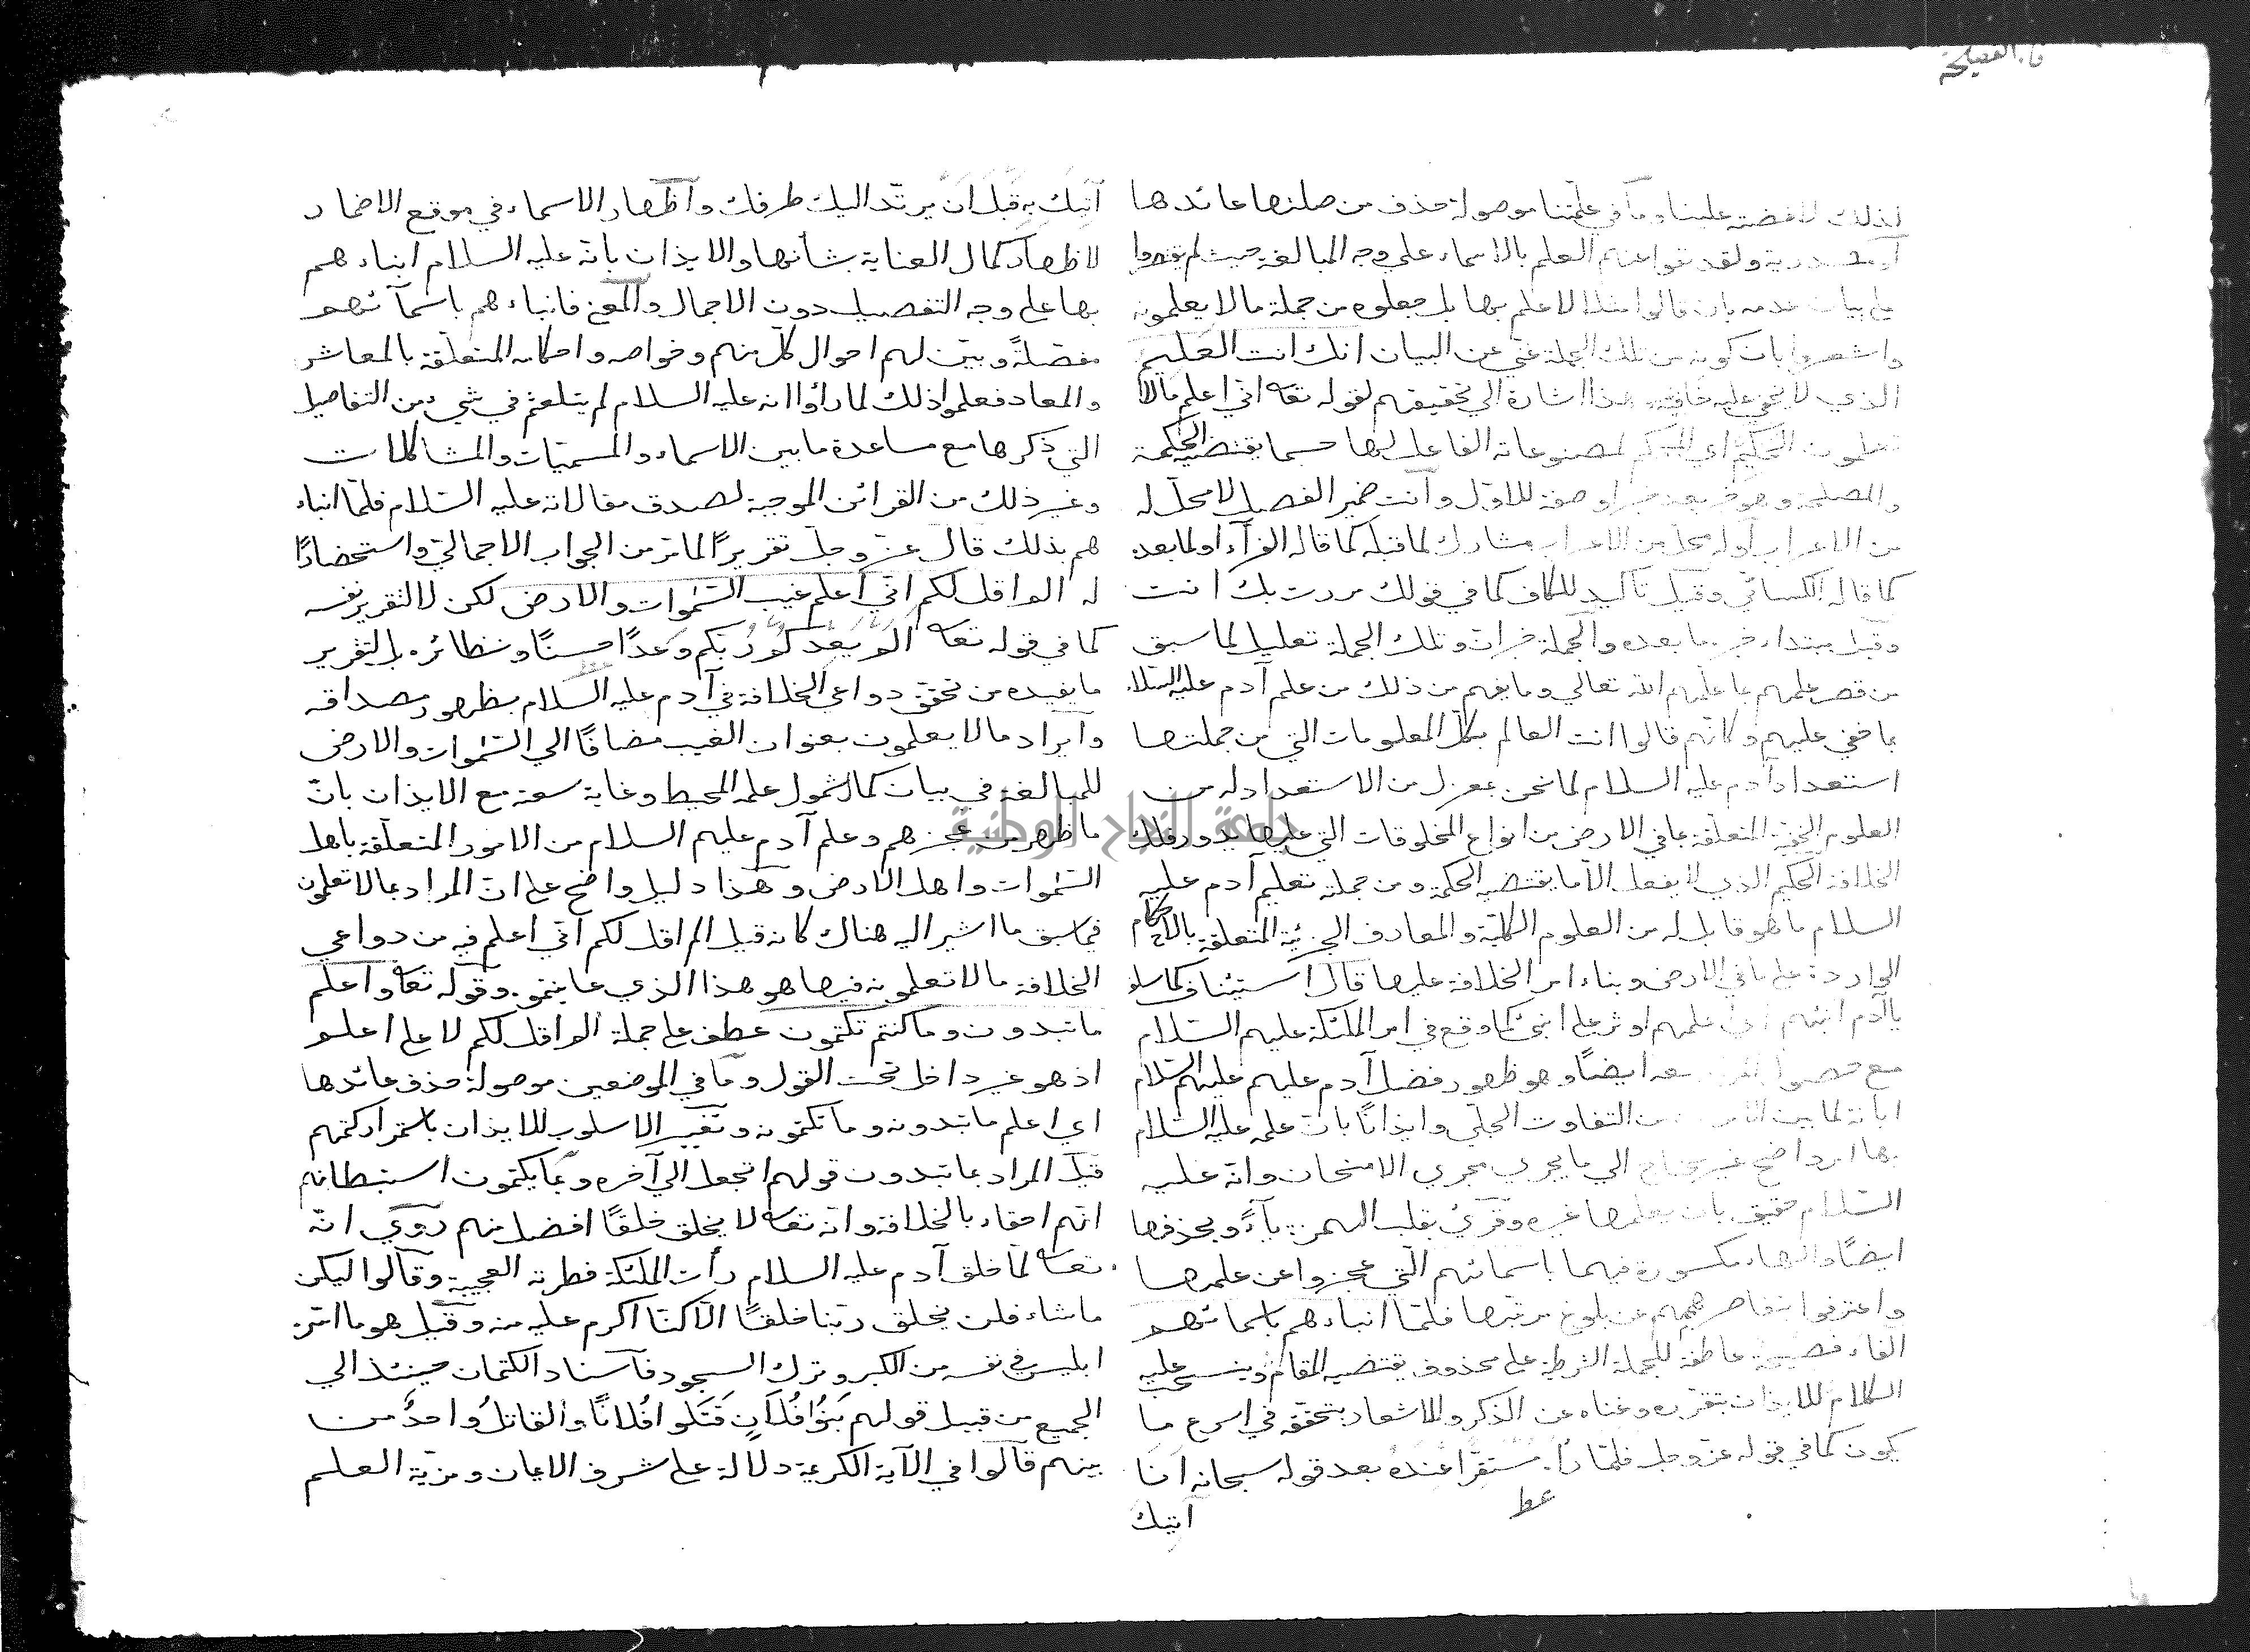 فا. الفصيحة
لذلك لافضته علينا وما في علمتنا موصولة حذف من صلتها عائدها
او مصدرية ولقد نفوا عنهم العلم بالاسماء على وجه المبالغة حيث لم يقتصروا
على بيان عدمه بان قالوا مثلا لا علم بها بل جعلوه من جملة ما لا يعلمونه
واشعروا بان كونه من تلك الجملة غني عن البيان انك انت العليم
الذي لا يخفى عليه خافية هذا اشارة الى تحقيقهم لقوله تعا اني اعلم مالا
تعلمون الحكيم اي المحكم لمصنوعاته الفاعل لها حسبما يقتضيه الحكمة
والمصلحة وهو خبر بعد خبر او صفة للاول وانت ضمير الفصل لا محل له
من الاعراب اوله محل من الاعراب مشارك لما قبله كما قاله الفرآء او لما بعده
كما قاله الكسائي وقيل تأكيد للكاف كما في قولك مررت بك انت
وقيل مبتداء خبره ما بعده والجملة خبر ان وتلك الجملة تعليل لما سبق
من قصر علمهم بما علمهم الله تعالى وما يفهم من ذلك من علم آدم عليه السلام
بما خفي عليهم وكأنهم قالوا انت العالم بكل المعلومات التي من جملتها
استعداد آدم عليه السلام لما نحن بمعزل من الاستعداد له من
العلوم الخفية المتعلقة بما في الارض من انواع المخلوقات التي عليها يدور فلك
الخلافة الحكيم الذي لا يفعل الا ما يقتضيه الحكمة ومن جملة تعليم آدم عليه
السلام ما هو قابل له من العلوم الكلية والمعارف الجزئية المتعلقة بالاحكام
الواردة على ما في الارض وبناء امر الخلافة عليها قال استيناف كما سلف
يا آدم انبئهم اي اعلمهم اوثر على انبئ كما وقع في امر الملئكة عليهم السلام
مع حصول المراد معه ايضًا وهو ظهور فضل آدم عليهم عليهم السلام
ابانة لما بين الامرين من التفاوت الجلي وايذانًا بان علمه عليه السلام
بها امر واضح غير محتاج الى ما يجري مجرى الامتحان وانه عليه
السلام حقيق بان يعلمها غيره وقرئ بقلب الهمزة يآءً وبحذفها
ايضًا والهاء مكسورة فيهما باسمائهم التي عجزوا عن علمها
واعترفوا بتقاصر هممهم عن بلوغ مرتبتها فلما انباءهم باسمائهم
الفاء فصيحة عاطفة للجملة الشرطية على محذوف يقتضيه المقام وينسحب عليه
الكلام للايذان بتقرره وغناه عن الذكر والاشعار بتحققه في اسرع ما
يكون كما في قوله عز وجل فلما رآه مستقرا عنده بعد قوله سبحانه انا
عط
آتيك
آتيك به قبل ان يرتد اليك طرفك واظهار الاسماء في موقع الاضمار
لاظهار كمال العناية بشأنها والايذان بانه عليه السلام انباءهم
بها على وجه التفصيل دون الاجمال والمعنى فانباءهم باسمآئهم
مفصلةً وبين لهم احوال كل منهم وخواصه واحكامه المتعلقة بالمعاش
والمعاد فعلموا ذلك لما رأوا انه عليه السلام لم يتلعثم في شيء من التفاصيل
التي ذكرها مع مساعدة ما بين الاسماء والمسميات والمشاكلات
وغير ذلك من القرائن الموجبة لصدق مقالاته عليه السلام فلما انباء
هم بذلك قال عز وجل تقريرًا لما مر من الجواب الاجمالي واستحضارًا
له الم اقل لكم اني اعلم غيب السموات والارض لكن لا لتقرير نفسه
كما في قوله تعا الم يعدكم ربكم وعدًا حسنًا ونظائره بل لتقرير
ما يفيده من تحقق دواعي الخلافة في آدم عليه السلام بظهور مصداقه
وايراد ما لا يعلمون بعنوان الغيب مضافًا الى السموات والارض
للمبالغة في بيان كمال شمول علمه المحيط وغاية سعته مع الايذان بان
ما ظهر من عجزهم وعلم آدم عليهم السلام من الامور المتعلقة باهل
السموات واهل الارض وهذا دليل واضح على ان المراد بما لا تعلمون
فيما سبق ما اشير اليه هناك كانه قيل الم اقل لكم اني اعلم فيه من دواعي
الخلافة ما لا تعلمونه فيها هو هذا الذي عاينتموه وقوله تعا واعلم
ما تبدون وما كنتم تكتمون عطف على جملة الم اقل لكم لا على اعلم
اذ هو غير داخل تحت القول وما في الموضعين موصولة حذف عائدها
اي اعلم ما تبدونه وما تكتمونه وتغيير الاسلوب للايذان باستمرار كتمهم
قيل المراد بما تبدون قولهم اتجعل الى آخره وبما يكتمون استبطانهم
انهم احقاء بالخلافة وانه تعا لا يخلق خلقًا افضل منهم روي انه
تعا لما خلق آدم عليه السلام رأت الملئكة فطرته العجيبة وقالوا ليكن
ما شاء فلن يخلق ربنا خلقًا الا كنا اكرم عليه منه وقيل هو ما اسر
ابليس في نفسه من الكبر وترك السجود فاسناد الكتمان حينئذ الى
الجميع من قبيل قولهم بَنُوا فُلَانٍ قَتَلوا فُلانًا والقاتلُ واحدٌ من
بينهم قالوا في الآية الكريمة دلالة على شرف الانسان ومزية العلم
جامعة النجاح الوطنية